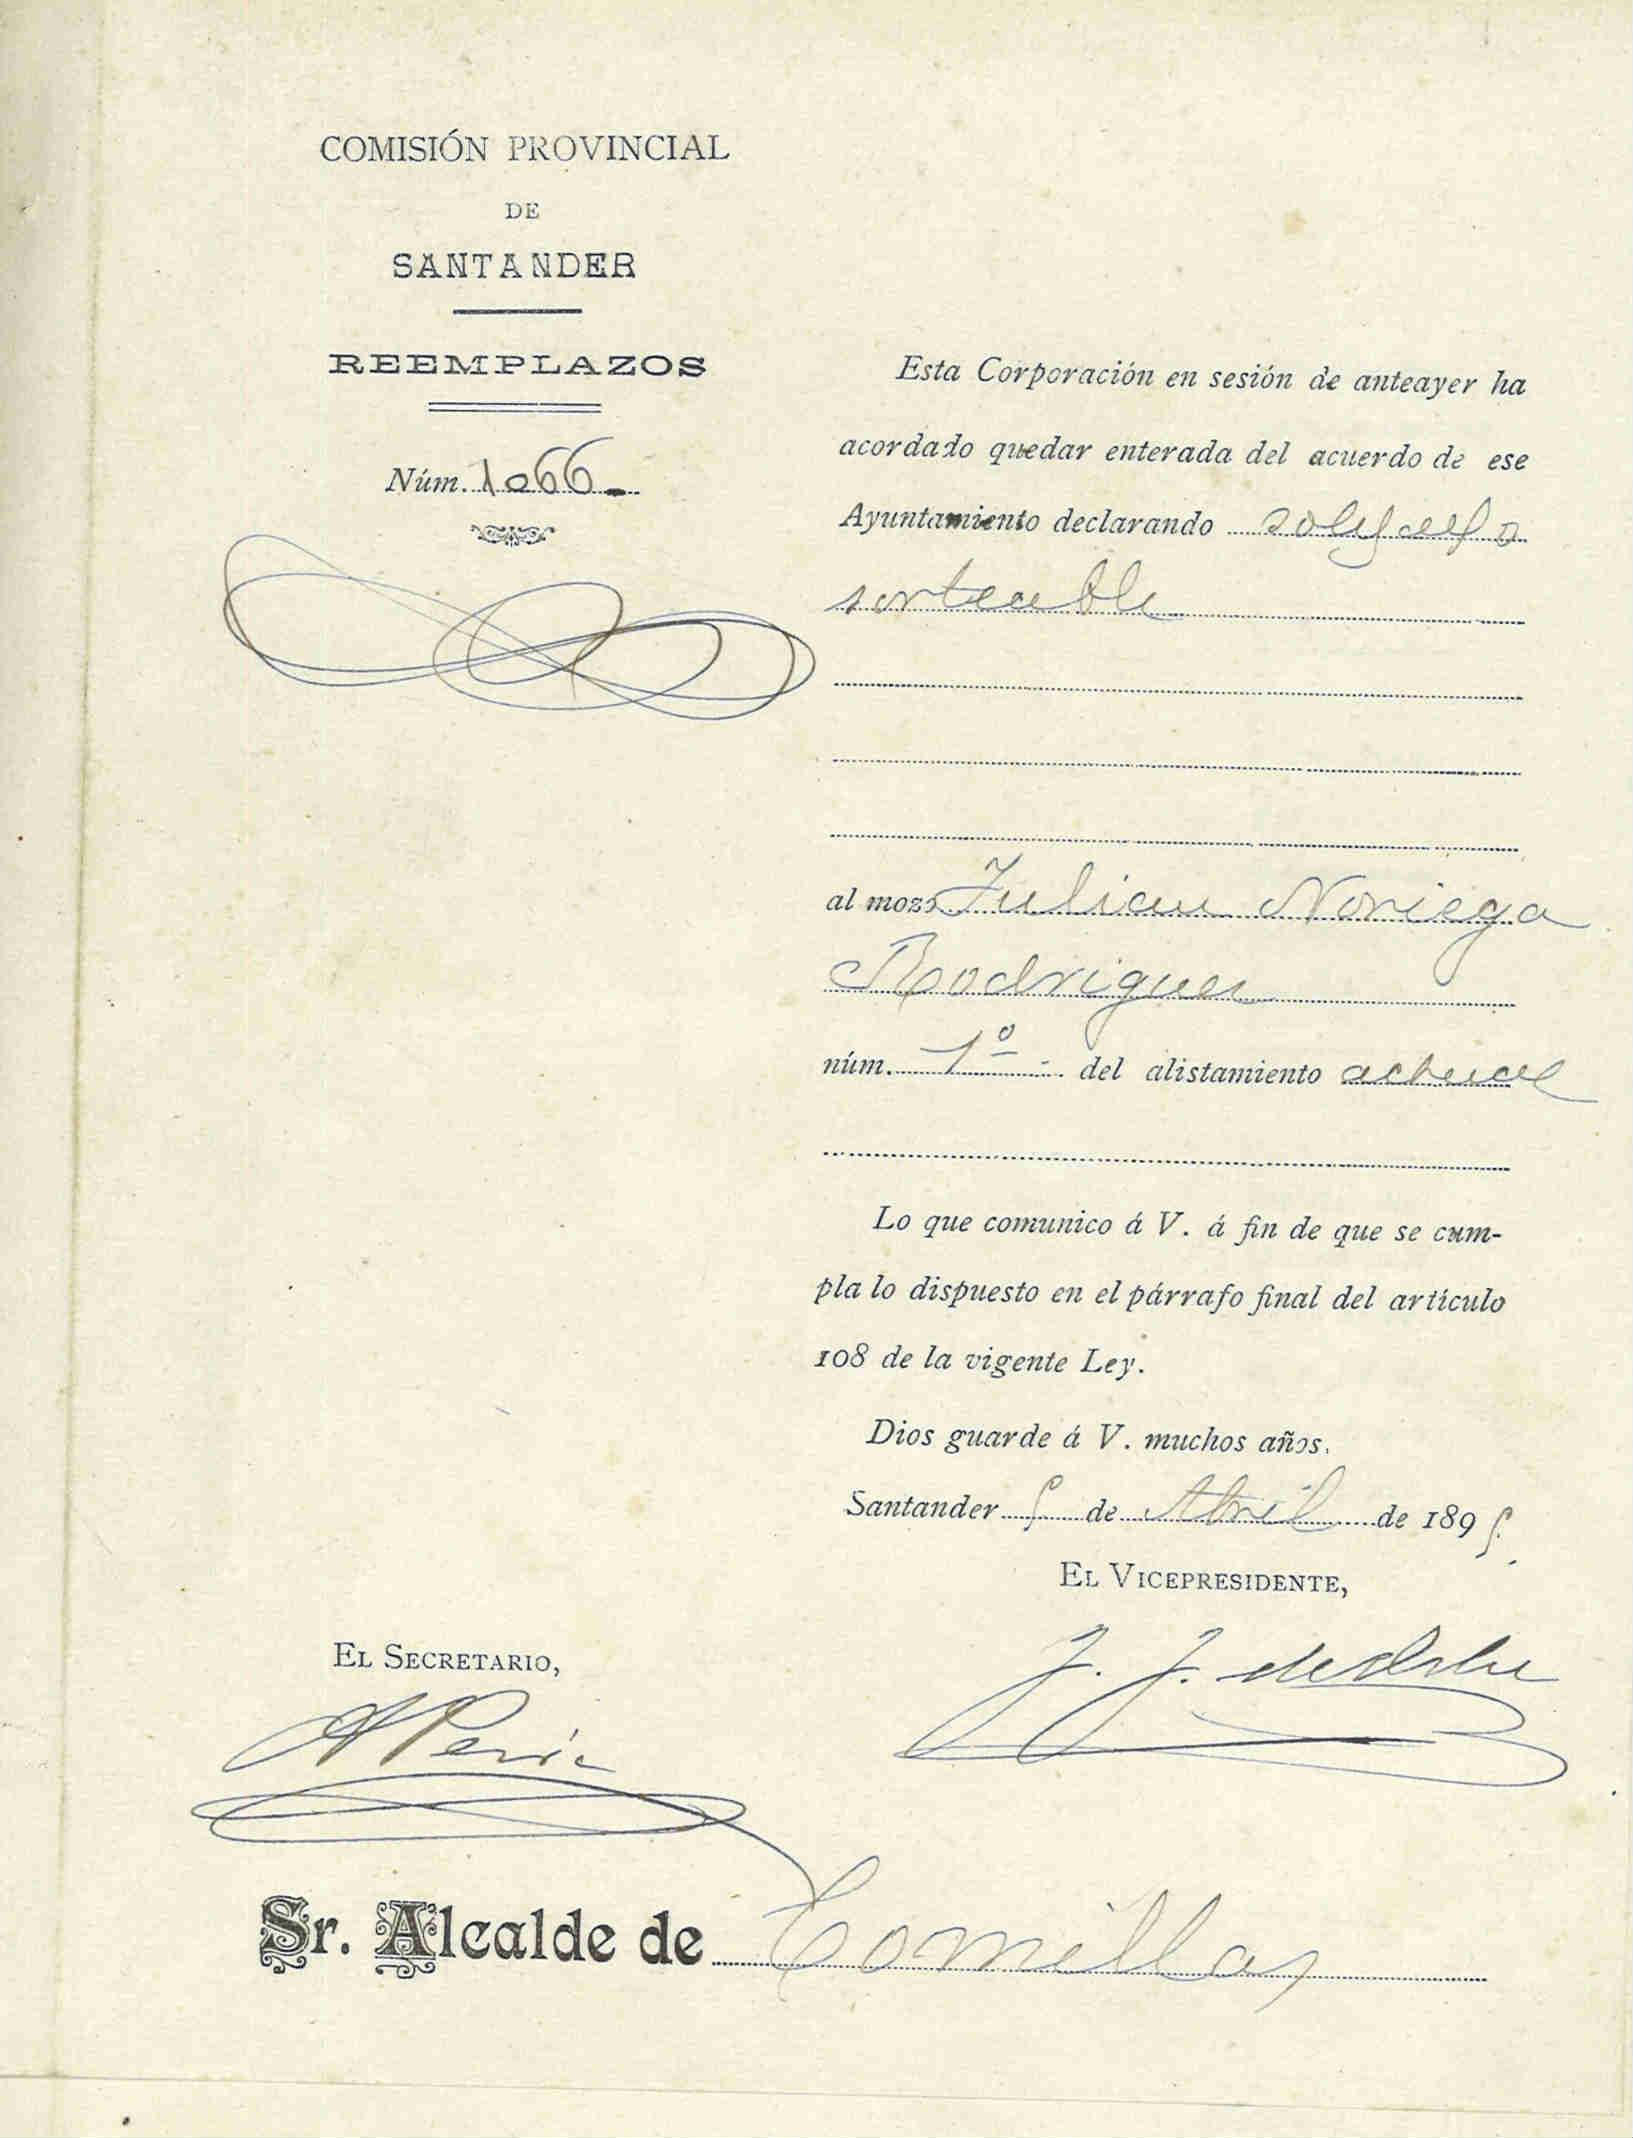 COMISIÓN PROVINCIAL
DE
SANTANDER
REEMPLAZOS
Núm. 1066
Esta Corporación en sesión de anteayer ha
acordado quedar enterada del acuerdo de ese
Ayuntamiento declarando soldado
sorteable
al mozo Julian Noriega
Rodriguez
núm. 1º del alistamiento actual
Lo que comunico á V. á fin de que se cum-
pla lo dispuesto en el párrafo final del artículo
108 de la vigente Ley.
Dios guarde á V. muchos años.
Santander 5 de Abril de 1895.
EL VICEPRESIDENTE,
J. J. de
EL SECRETARIO,
A
Sr. Alcalde de Comillas